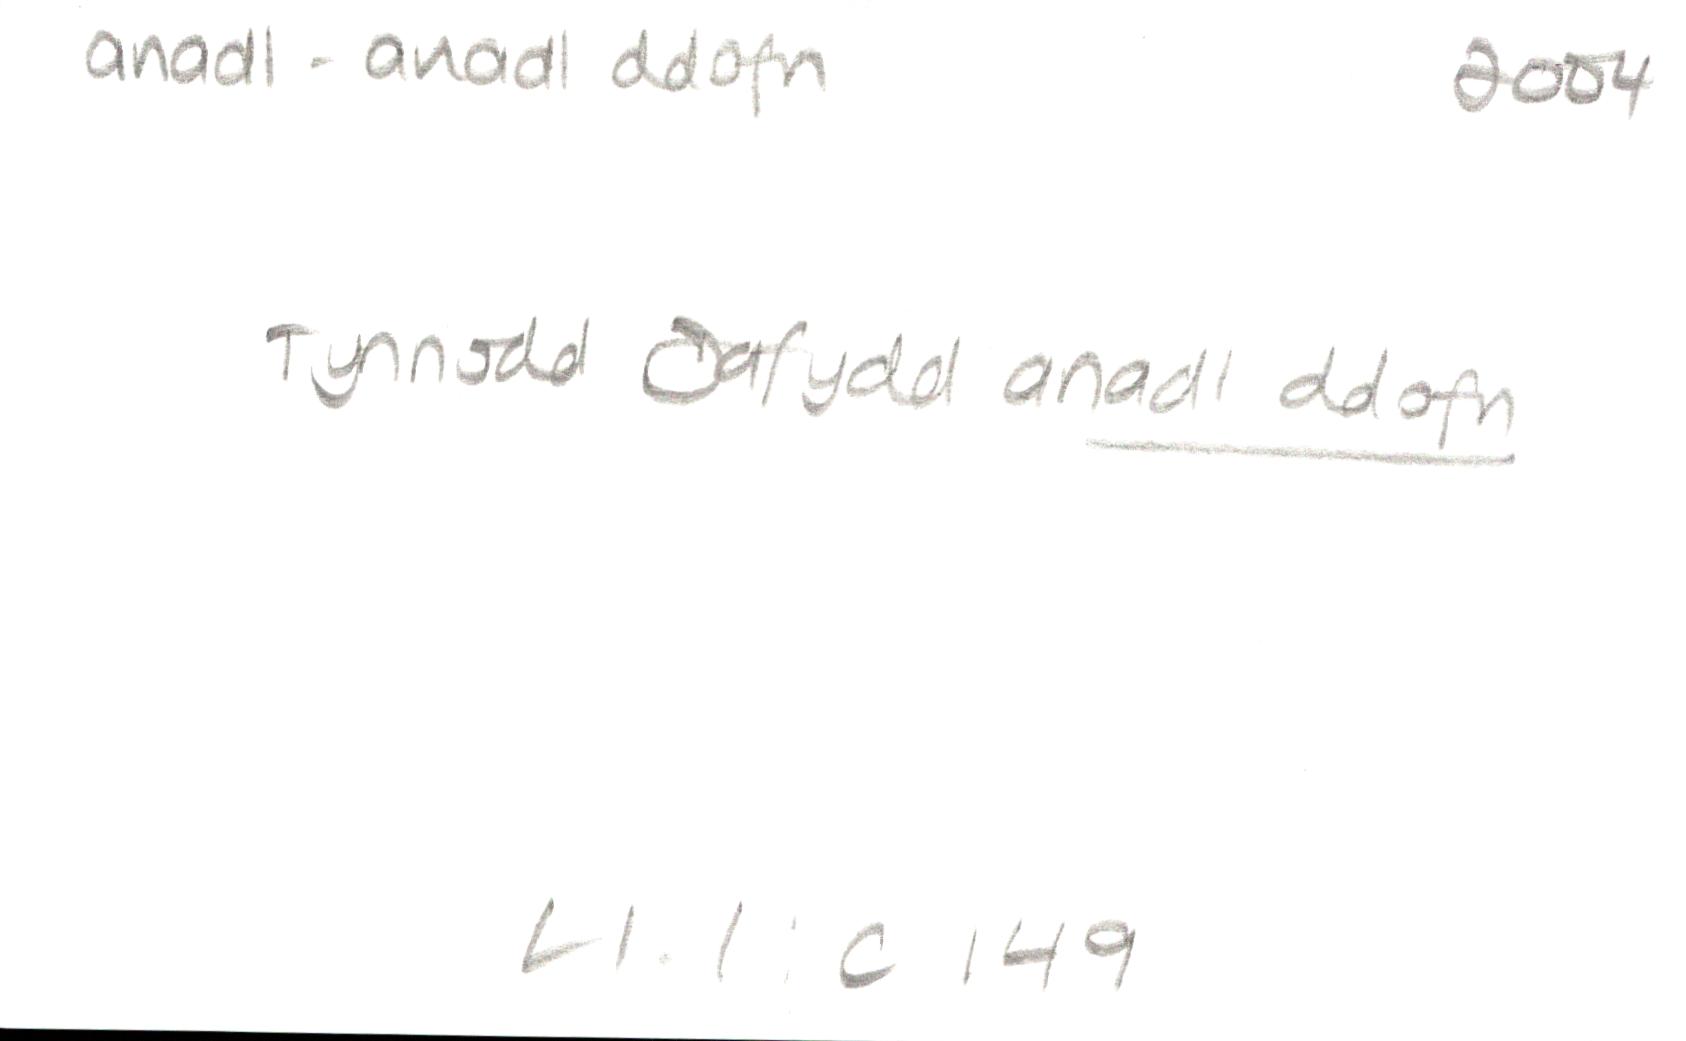 anadl - anadl ddofn 2004
Tynnodd Dafydd anadl ddofn
Ll.1: C 149